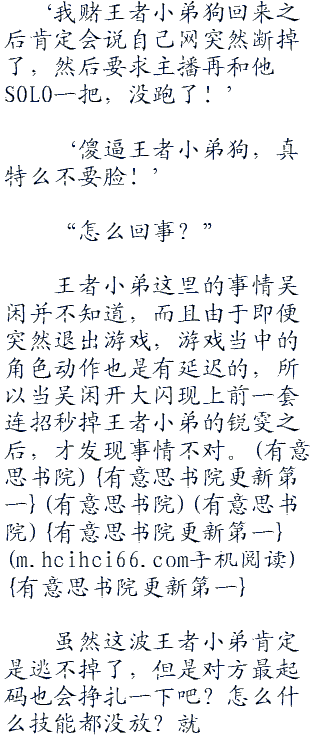 ‘我赌王者小弟狗回来之
后肯定会说自己网突然断掉
了，然后要求主播再和他
SOLO一把，没跑了！’
‘傻逼王者小弟狗，真
特么不要脸！’
“怎么回事？”
王者小弟这里的事情吴
闲并不知道，而且由于即使
突然退出游戏，游戏当中的
角色动作也是有延迟的，所
以当吴闲开大闪现上前一套
连招秒掉王者小弟的锐雯之
后，才发现事情不对。(有意
思书院){有意思书院更新第
一}(有意思书院)(有意思书
院){有意思书院更新第一}
(m.hcihci66.com手机阅读)
{有意思书院更新第一}
虽然这波王者小弟肯定
是逃不掉了，但是对方最起
码也会挣扎一下吧？怎么什
么技能都没放？就